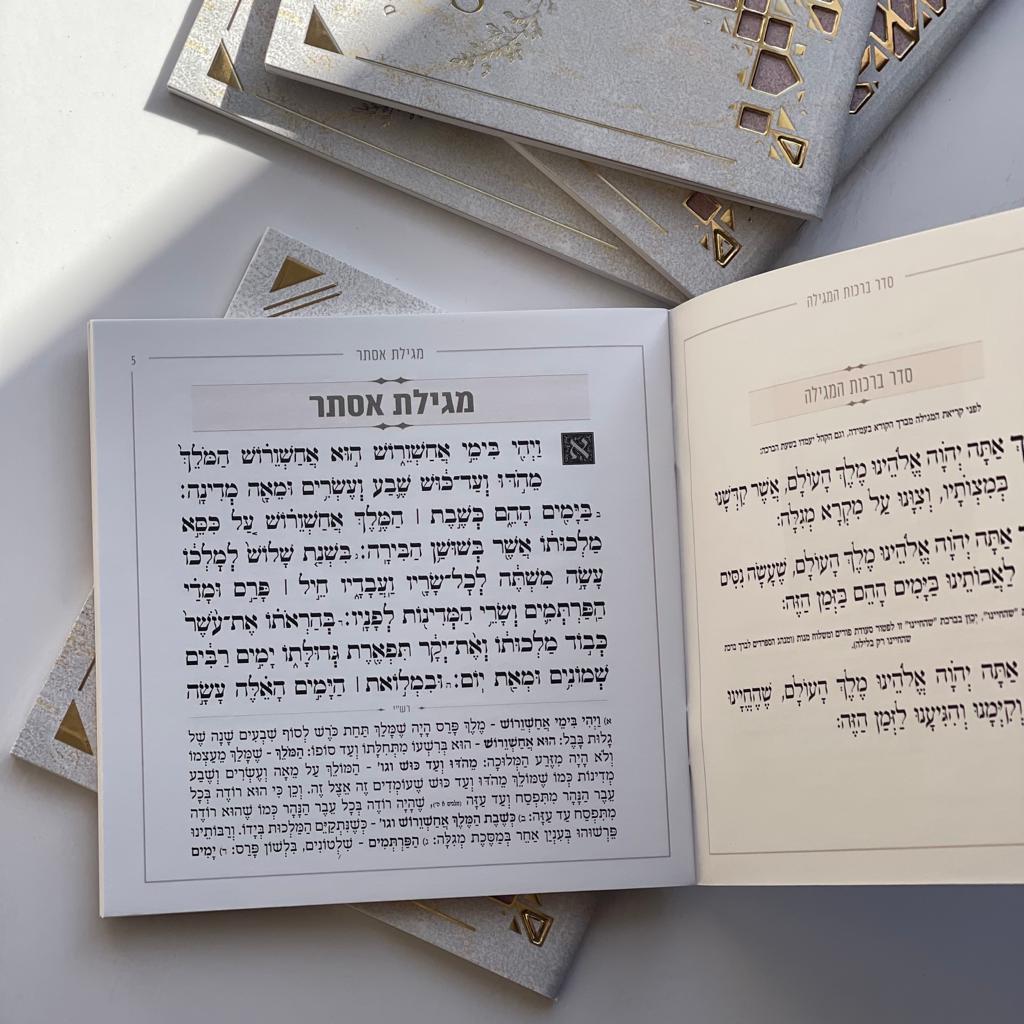 סדר ברכות המגילה
סדר ברכות המגילה
לפני קריאת המגילה מברך הקורא בעמידה, וגם הקהל יעמדו בשעת הברכה:
אַתָּה יְהֹוָה אֱלֹהֵינוּ מֶלֶךְ הָעוֹלָם, אֲשֶׁר קִדְּשָׁנוּ
בְּמִצְוֹתָיו, וְצִוָּנוּ עַל מִקְרָא מְגִלָּה:
אַתָּה יְהֹוָה אֱלֹהֵינוּ מֶלֶךְ הָעוֹלָם, שֶׁעָשָׂה נִסִּים
לַאֲבוֹתֵינוּ בַּיָּמִים הָהֵם בַּזְּמַן הַזֶּה:
"שהחיינו", יְכַוֵּן בברכת "שהחיינו" זו לפטור סעודת פורים ומשלוח מנות (ומנהג הספרדים לברך ברכת
שהחיינו רק בלילה).
אַתָּה יְהֹוָה אֱלֹהֵינוּ מֶלֶךְ הָעוֹלָם, שֶׁהֶחֱיָנוּ
וְקִיְּמָנוּ וְהִגִּיעָנוּ לַזְּמַן הַזֶּה:
מגילת אסתר 5
מגילת אסתר
א וַיְהִי בִּימֵי אֲחַשְׁוֵרוֹשׁ הוּא אֲחַשְׁוֵרוֹשׁ הַמֹּלֵךְ
מֵהֹדּוּ וְעַד־כּוּשׁ שֶׁבַע וְעֶשְׂרִים וּמֵאָה מְדִינָה:
ב בַּיָּמִים הָהֵם כְּשֶׁבֶת | הַמֶּלֶךְ אֲחַשְׁוֵרוֹשׁ עַל כִּסֵּא
מַלְכוּתוֹ אֲשֶׁר בְּשׁוּשַׁן הַבִּירָה: ג בִּשְׁנַת שָׁלוֹשׁ לְמָלְכוֹ
עָשָׂה מִשְׁתֶּה לְכָל־שָׂרָיו וַעֲבָדָיו חֵיל | פָּרַס וּמָדַי
הַפַּרְתְּמִים וְשָׂרֵי הַמְּדִינוֹת לְפָנָיו: ד בְּהַרְאֹתוֹ אֶת־עֹשֶׁר
כְּבוֹד מַלְכוּתוֹ וְאֶת־יְקָר תִּפְאֶרֶת גְּדוּלָּתוֹ יָמִים רַבִּים
שְׁמוֹנִים וּמְאַת יוֹם: ה וּבִמְלוֹאת | הַיָּמִים הָאֵלֶּה עָשָׂה
רש"י
א) וַיְהִי בִּימֵי אֲחַשְׁוֵרוֹשׁ - מֶלֶךְ פָּרַס הָיָה שֶׁמָּלַךְ תַּחַת כֹּרֶשׁ לְסוֹף שִׁבְעִים שָׁנָה שֶׁל
גָּלוּת בָּבֶל: הוּא אֲחַשְׁוֵרוֹשׁ - הוּא בְּרִשְׁעוֹ מִתְּחִלָּתוֹ וְעַד סוֹפוֹ: הַמֹּלֵךְ - שֶׁמָּלַךְ מֵעַצְמוֹ
וְלֹא הָיָה מִזֶּרַע הַמְּלוּכָה: מֵהֹדּוּ וְעַד כּוּשׁ וגו' - הַמּוֹלֵךְ עַל מֵאָה וְעֶשְׂרִים וְשֶׁבַע
מְדִינוֹת כְּמוֹ שֶׁמּוֹלֵךְ מֵהֹדּוּ וְעַד כּוּשׁ שֶׁעוֹמְדִים זֶה אֵצֶל זֶה. וְכֵן כִּי הוּא רוֹדֶה בְּכָל
עֵבֶר הַנָּהָר מִתִּפְסַח וְעַד עַזָּה, שֶׁהָיָה רוֹדֶה בְּכָל עֵבֶר הַנָּהָר כְּמוֹ שֶׁהוּא רוֹדֶה
מִתִּפְסַח עַד עַזָּה: ב) כְּשֶׁבֶת הַמֶּלֶךְ אֲחַשְׁוֵרוֹשׁ וגו' - כְּשֶׁנִּתְקַיֵּם הַמַּלְכוּת בְּיָדוֹ. וְרַבּוֹתֵינוּ
פֵּרְשׁוּהוּ בְּעִנְיָן אַחֵר בְּמַסֶּכֶת מְגִלָּה: ג) הַפַּרְתְּמִים - שִׁלְטוֹנִים, בִּלְשׁוֹן פָּרַס: ד) יָמִים